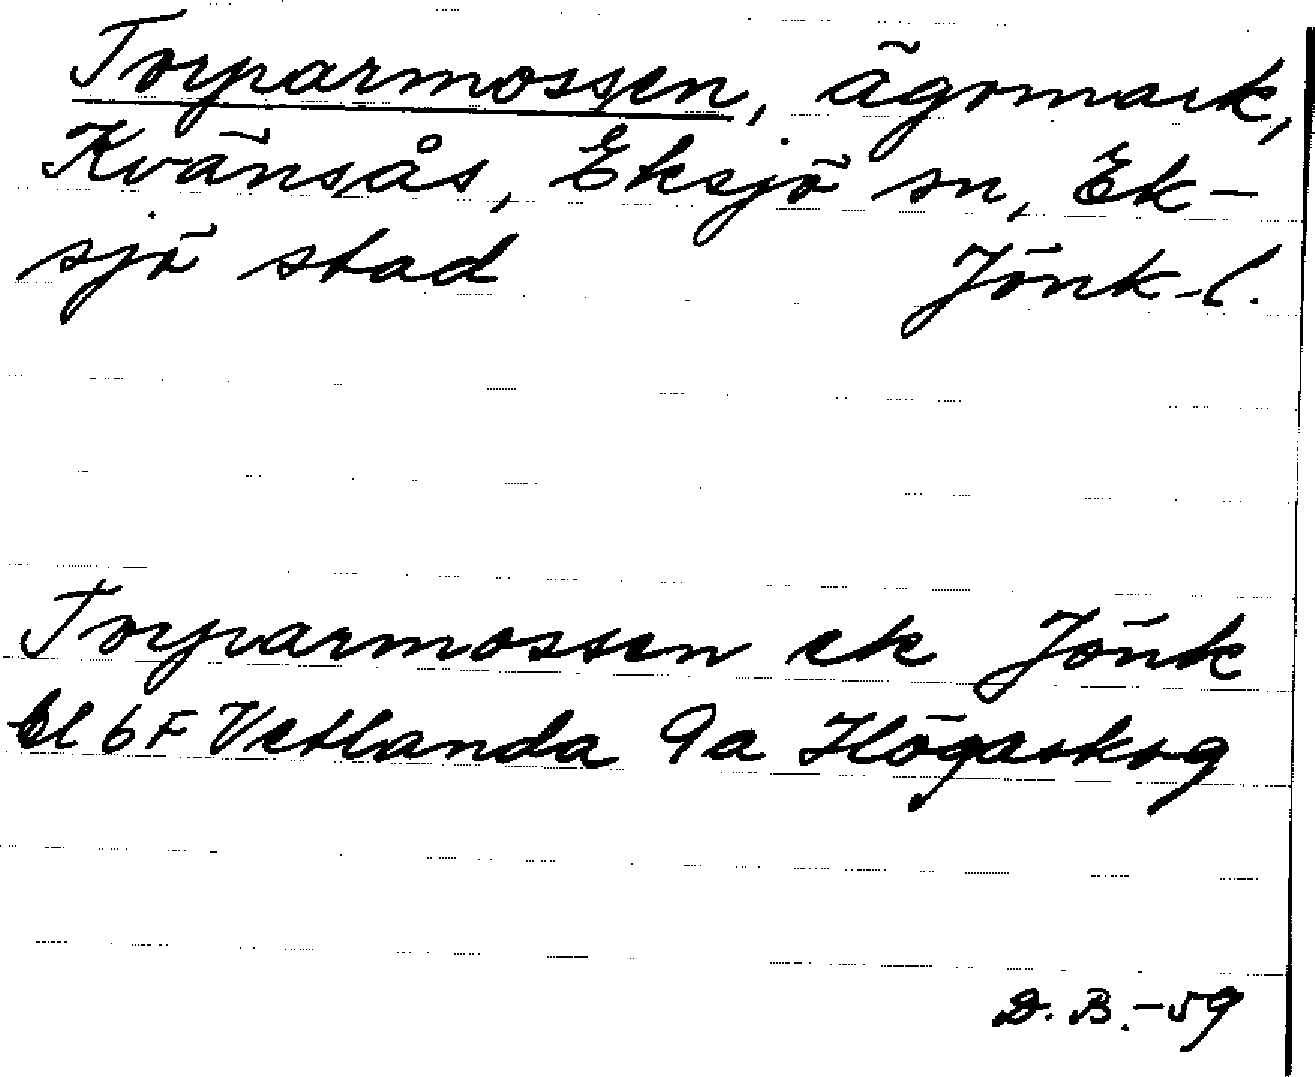 Torparmossen, ägomark,
Kvänsås, Eksjö sn, Ek-
sjö stad Jönk-l.
Torparmossen ek Jönk
bl 6F Vetlanda 9a Högaskog
D. B. -59